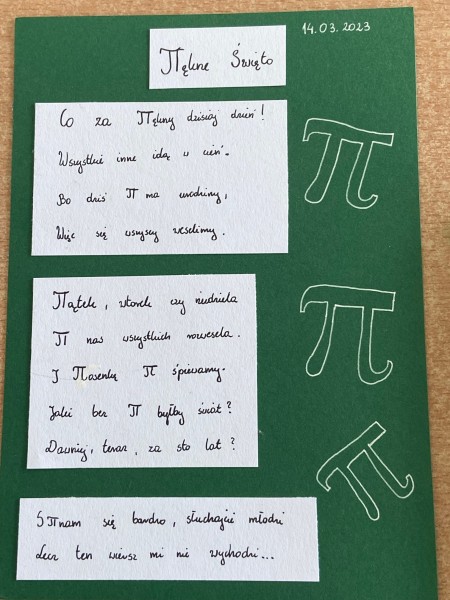 14.03.2023
Πękne Święto
Co za Πękny dzisiaj dzień!
Wszystkie inne idą w cień.
Bo dziś Π ma urodziny,
Więc się wszyscy weselimy.
Πątek, wtorek czy niedziela
Π nas wszystkich rozwesela.
I Πosenkę Π śpiewamy.
Jaki bez Π byłby świat?
Dawniej, teraz, za sto lat?
SΠnam się bardzo, słuchajcie młodzi
Lecz ten wiersz mi nie wychodzi...
π
π
π